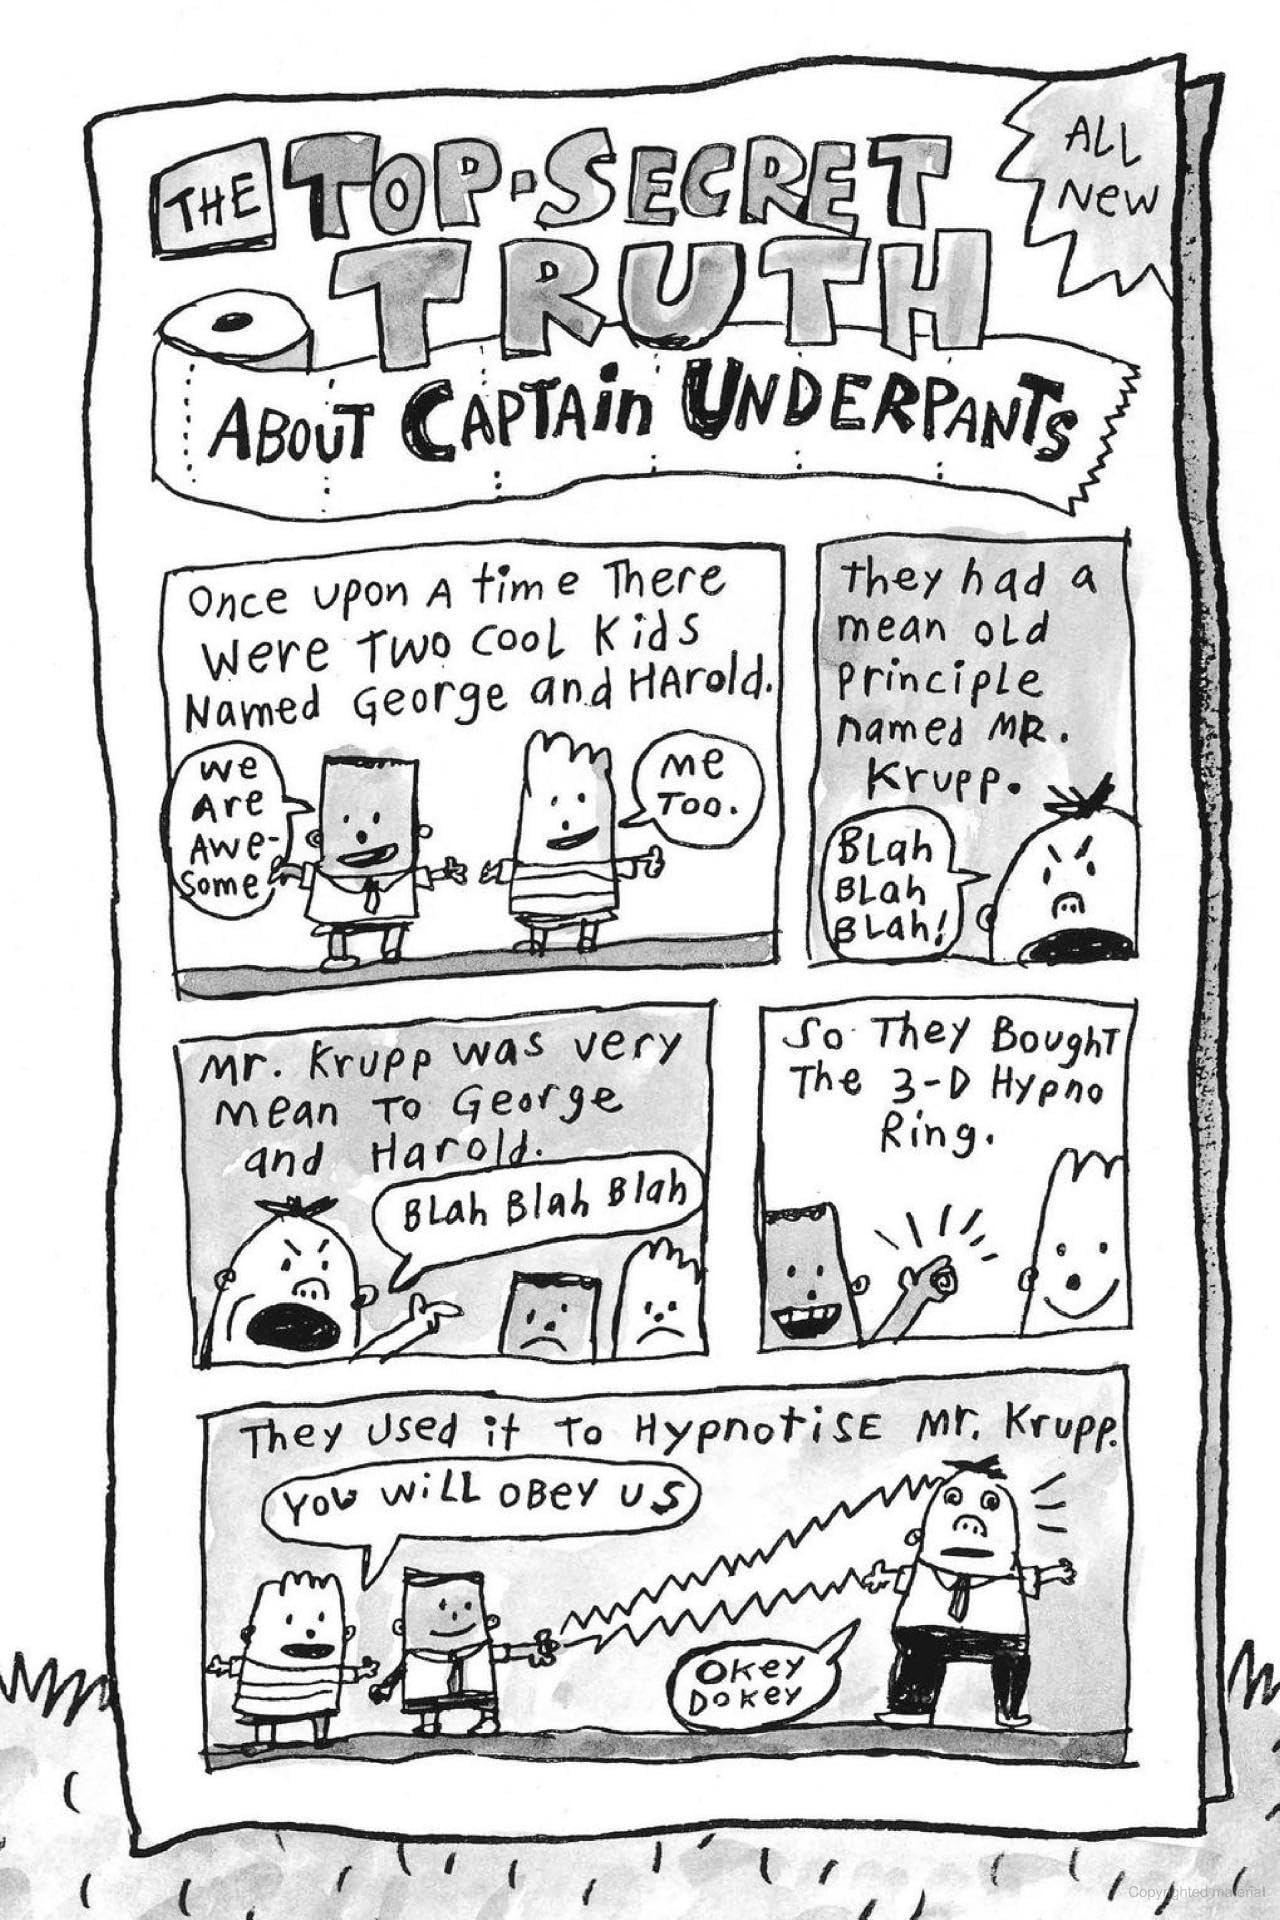 ALL
New
THE TOP-SECRET
TRUTH
ABOUT CAPTAin UNDERPANTS
Once upon A time There
Were Two Cool Kids
Named George and HArold.
We
Are
Awe-
some
Me
Too.
They had a
mean old
Principle
named MR.
Krupp.
BLah
BLah
BLah!
Mr. Krupp was very
Mean To George
and Harold.
BLah Blah Blah
So They Bought
The 3-D Hypno
Ring.
They Used it To HypnotiSE Mr. Krupp.
You Will OBey US
Okey
Dokey
Copyrighted material